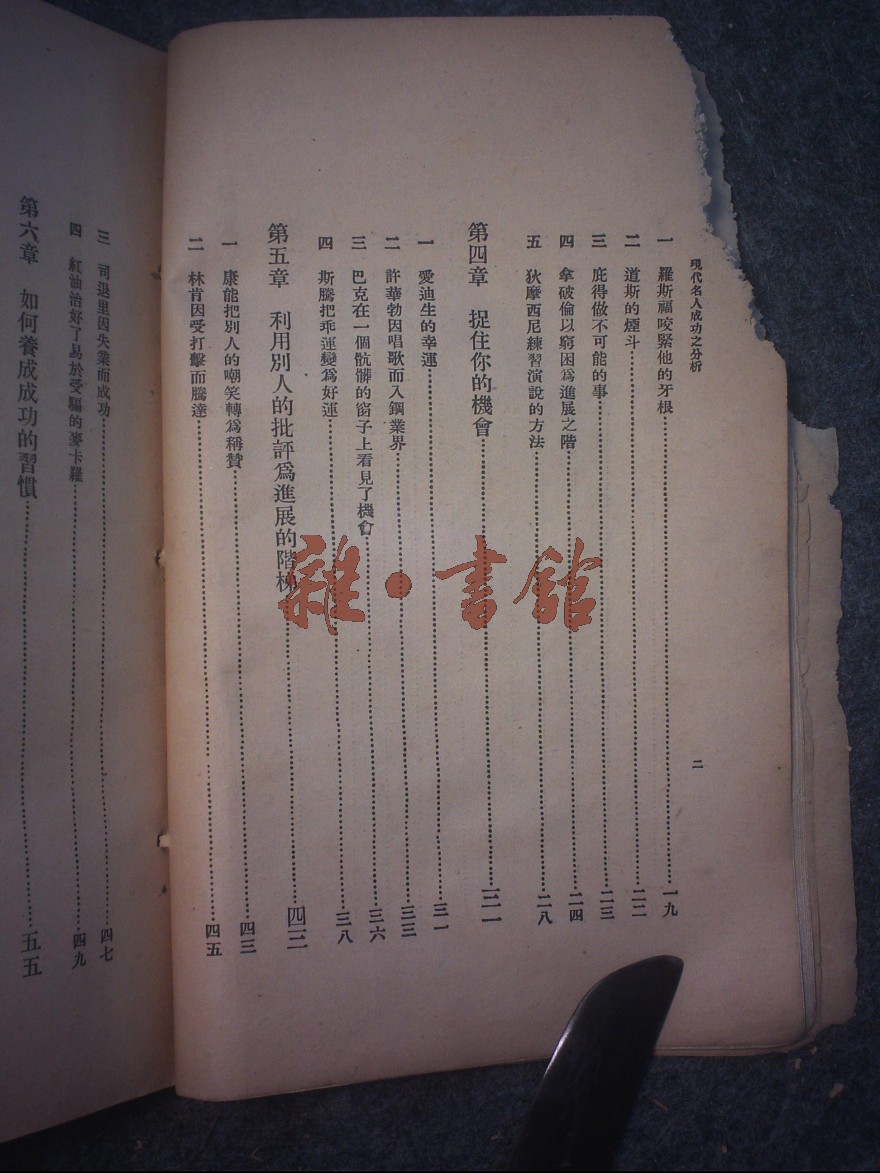 現代名人成功之分析
二
一 羅斯福咬緊他的牙根 一九
二 道斯的煙斗 二二
三 庇得做不可能的事 二三
四 拿破倫以窮困爲進展之階 二四
五 狄摩西尼練習演說的方法 二八
第四章 捉住你的機會 三一
一 愛迪生的幸運 三一
二 許華勃因唱歌而入鋼業界 三三
三 巴克在一個骯髒的窗子上看見了機會 三六
四 斯騰把乖運變爲好運 三八
第五章 利用別人的批評爲進展的階梯 四三
一 康能把別人的嘲笑轉爲稱贊 四三
二 林肯因受打擊而騰達 四五
三 司退里因失業而成功 四七
四 紅油治好了易於受騙的麥卡羅 四九
第六章 如何養成成功的習慣 五五
雜·書館